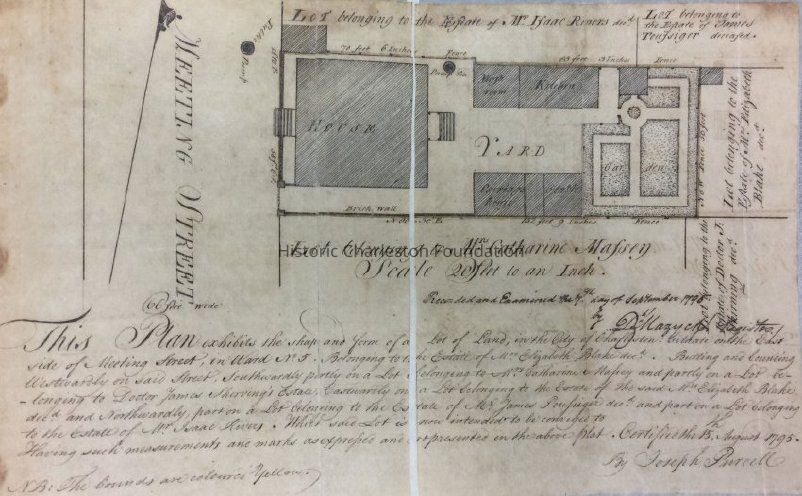 Lot belonging to the Estate of Mr. Isaac Rivers dec.d
Lot belonging to
the Estate of James
Poussiger deceased.
MEETING STREET
66 feet wide
Public
Pump
70 feet 6 Inches
Fence
63 feet 3 Inches
Fence
HOUSE
Wash
room
Kitchen
YARD
Carriage
House
Stable
Garden
Brick wall
Fence
Lot belonging to the
Estate of Mrs. Elizabeth
Blake dec.d
Lot belonging to the
Estate of Doctor J.
Lot belonging to Mrs. Catharine Massey
Historic Charleston Foundation
Scale 20 feet to an Inch.
Recorded and Examined the 7th day of September 1795
by
This Plan exhibits the shap and form of a Lot of Land, in the City of Charleston. Situate on the East
side of Meeting Street, in Ward N. 5. Belonging to the Estate of Mrs. Elizabeth Blake dec.d Butting and bounding
Westwardly on said Street, Southwardly partly on a Lot belonging to Mrs. Catharine Massey and partly on a Lot be-
-longing to Doctor James Estate, Eastwardly on a Lot belonging to the Estate of the said Mrs. Elizabeth Blake
dec.d and Northwardly, part on a Lot belonging to the Estate of Mr. James dec.d and part on a Lot belonging
to the Estate of Mr. Isaac Rivers. Which said Lot is now intended to be conveyed to
Having such measurements and marks as expressed and represented in the above plat. Certified the 15th August 1795.
By Joseph Purcell
NB: The bounds are coloured Yellow.